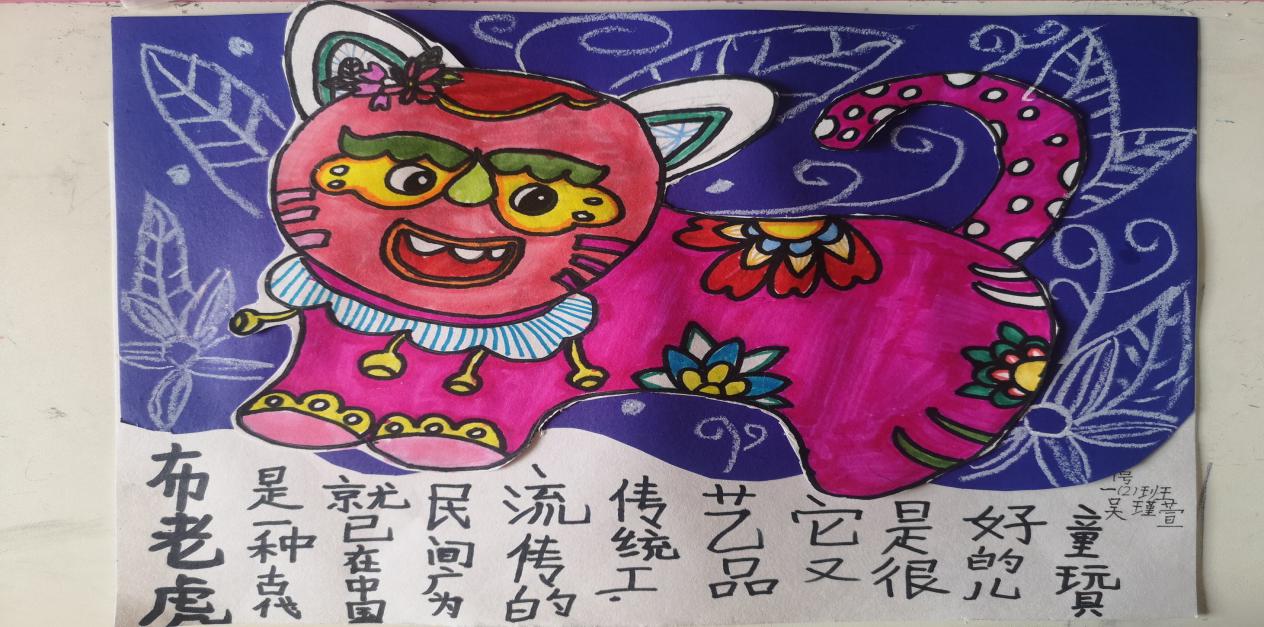 布老虎
是一种古代
就已在中国
民间广为
流传的
传统工
艺品
它又
是很
好的儿
童玩具
号
一(2)班
吴瑾萱